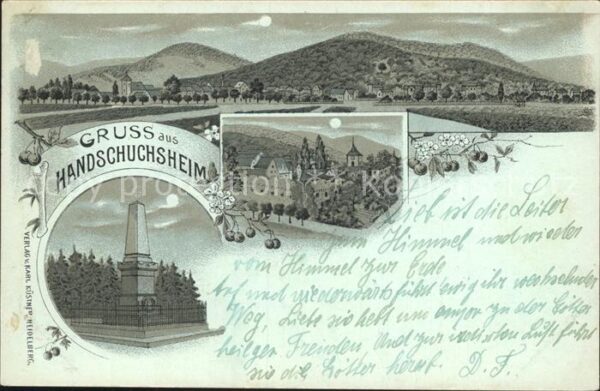 GRUSS aus
HANDSCHUCHSHEIM
VERLAG v. KARL KÜSTNER, HEIDELBERG.
Lieb ist die Leiter
zum Himmel und wieder
vom Himmel zur Erde
auf und niederwärts führt ewig ihr wechselnder
Weg, Liebe sie hebt uns empor zu der Götter
heilgen Freuden. Und zur Lust führt
sie die Götter herab. D. F.